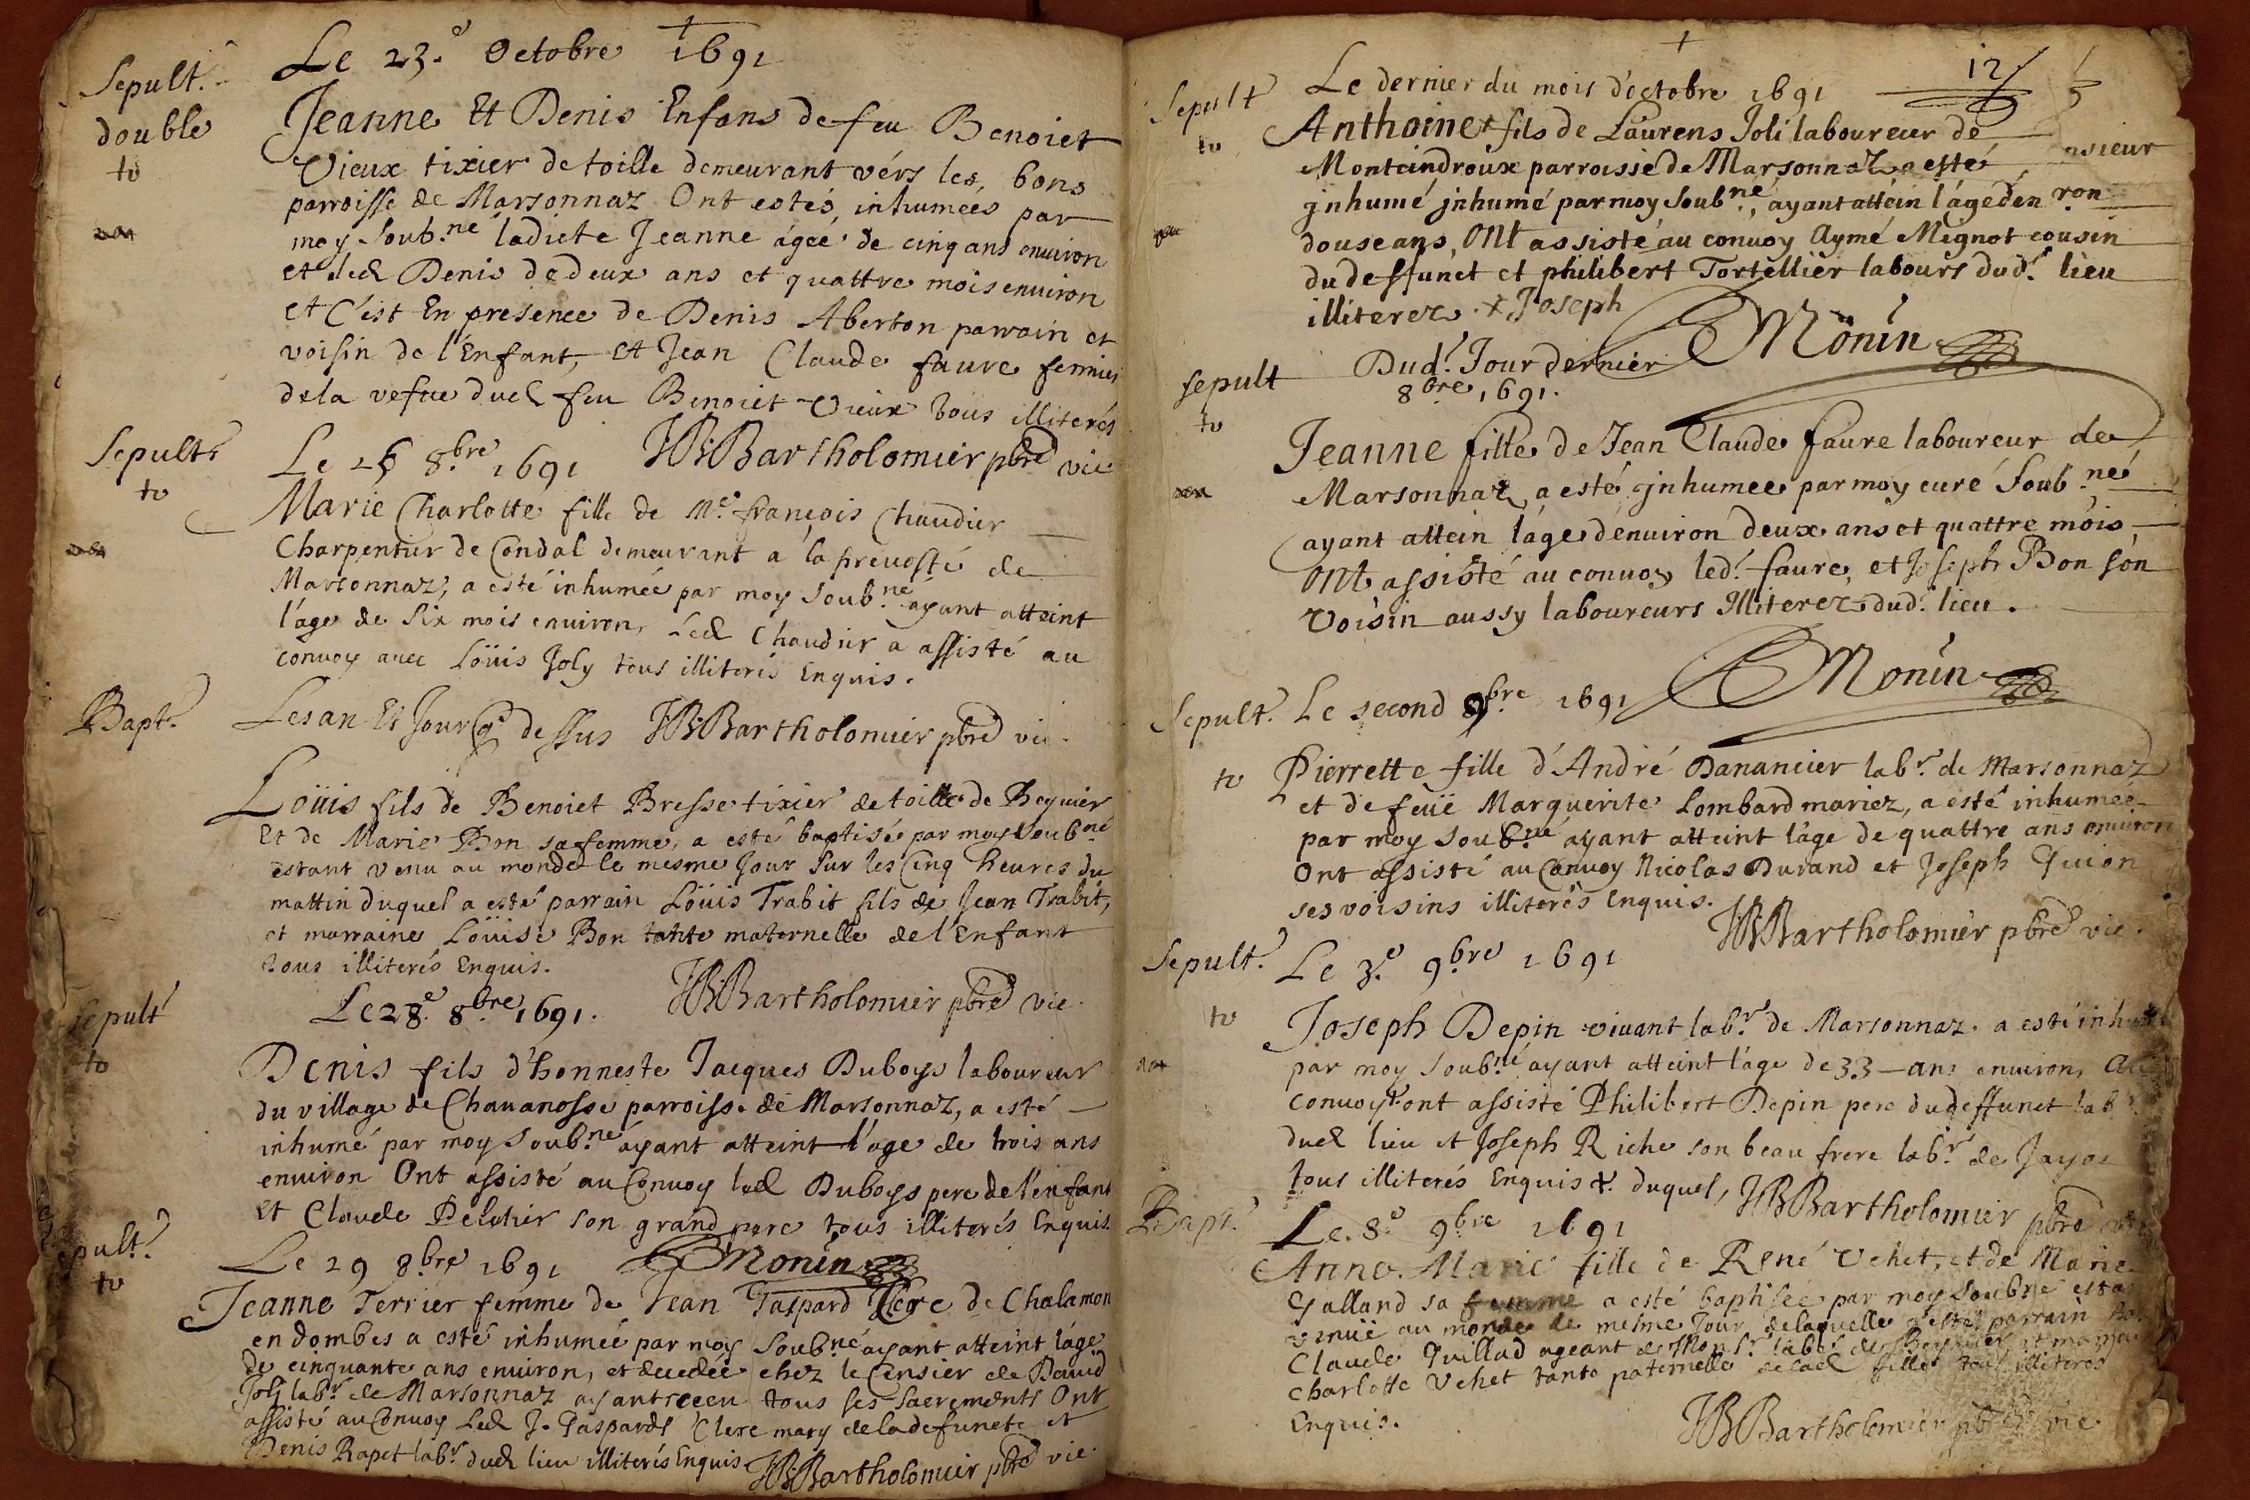 Sepult.
double
to
Le 23.e Octobre 1691
Jeanne Et Denis Enfans de feu Benoiet
Vieux tixier de toille demeurant vérs les, bons
parroisse de Marsonnaz Ont estés, inhumeés par
moy Soub.né ladicte Jeanne ágeé de cinq ans enuiron
et led Denis de deux ans et quattre mois enuiron
et C'est En presence de Denis Aberton parrain et
voisin de l'Enfant, Et Jean Claude faure fermier
dela vefue dud feu Benoiet Vieux tous illiterés
JB:Bartholomier pbre vic
Sepult.
to
Le 26 8.bre 1691
Marie Charlotte fille de Me. françois Chaudier
Charpentier de Condal demeurant a la preuosté de
Marsonnaz, a esté inhumée par moy Soub.né ayant atteint
l'age de Six mois enuiron, Led Chaudier a assisté au
conuoy auec Loüis Joly tous illiterés Enquis.
Bapt.
Les an Et Jour Cy dessus JB:Bartholomier pbre vic.
Loüis fils de Benoiet Bresse tixier de toille de Beyuier
Et de Marie Bon sa femme, a esté baptisé par moy Soub.né
estant venu au monde le mesme Jour Sur les Cinq heures du
mattin duquel a esté parrain Loüis Trabit fils de Jean Trabit,
et marraine Loüise Bon tante maternelle de l'Enfant
tous illiterés Enquis.
JB:Bartholomier pbre vic.
sepult
to
Le 28.e 8.bre 1691.
Denis fils d'honneste Jacques Duboys laboureur
du village de Chauanosse parroisse de Marsonnaz, a esté
inhumé par moy Soub.né ayant atteint l'age de trois ans
enuiron Ont assisté au Conuoy led Duboys pere de l'enfant
Et Claude Pelchier son grand pere tous illiterés Enquis
Monin
pult.
to
Le 29 8.bre 1691
Jeanne Terrier femme de Jean Gaspard Clerc de Chalamon
en dombes a esté inhumeé par moy Soub.né ayant atteint l'áge
de cinquante ans enuiron, et decedée chez le Censier de Dauid
Joly lab.r de Marsonnaz ayant receu tous ses Sacrements Ont
assisté au Conuoy Led J. Gaspard Clerc mary de la defuncte et
Denis Rapet lab.r dud lieu illiterés Enquis
JB:Bartholomier pbre vic.
12
Sepult
to
Le dernier du mois d'octobre 1691
Anthoine + fils de Laurens Joli laboureur de
Monteindroux parroisse de Marsonnaz a esté
jnhumé jnhumé par moy Soub.né, ayant attéin l'áge d'en
nsieur
ron
douse ans, Ont assisté au conuoy Aymé Mignot cousin
du deffunct et philibert Tortellier labours dud. lieu
illiterez. + Joseph
Monin
sepult
to
Dud. Jour dernier
8bre 1691.
Jeanne fille de Jean Claude faure laboureur de
Marsonnaz, a esté jnhumee par moy curé Soub.né
ayant attein l'áge d'enuiron deux ans et quattre mois
Ont assisté au conuoy led. faure, et Joseph Bon son
voisin aussy laboureurs Illiterez dud. lieu.
Monin
Sepult.
to
Le second 9bre 1691
Pierrette fille d'André Danancier lab.r de Marsonnaz
et de feuë Marguerite Lombard mariez, a esté inhumeé
par moy Soub.né ayant atteint l'áge de quattre ans enuiron
Ont assisté au Conuoy Nicolas Durand et Joseph Guion
ses voisins illiterés Enquis.
JB:Bartholomier pbre vic.
Sepult.
to
Le 3.e 9bre 1691
Joseph Depin viuant lab.r de Marsonnaz a esté
par moy Soub.né ayant atteint l'áge de 33 ans enuiron,
conuoy + ont assisté Philibert Depin pere du deffunct lab
dud lieu et Joseph Riche son beau frere lab.r de
tous illiterés Enquis +. duquel,
JB:Bartholomier pbre
Bapt.
Le. 8.e 9bre 1691
Anne. Marie fille de René Vehet, et de Marie
Galland sa femme a esté baptisée par moy Soubné
venuë au monde le mesme Jour delaquelle a esté parrain
Claude Guillad ageant de Mons.r l'abbé de
Charlotte Vehet tante paternelle de lad fille tous illiterés
Enquis.
JB:Bartholomier pbre vic